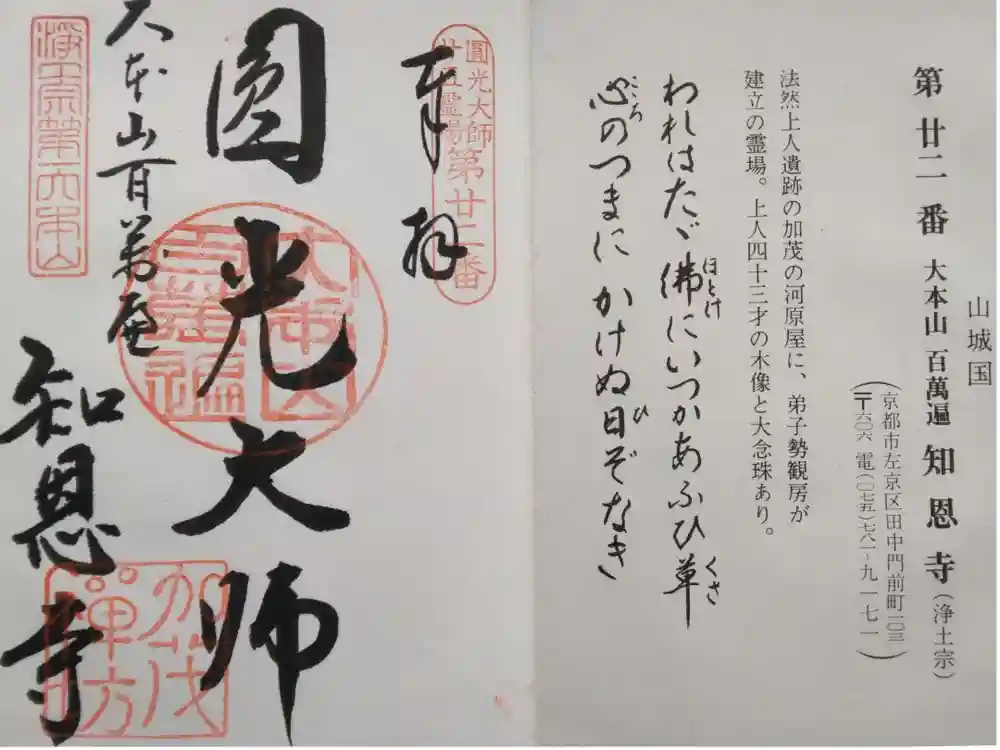 山城国
第廿二番 大本山 百萬遍 知恩寺(浄土宗)
(京都市左京区田中門前町一〇三
〒六〇六 電(〇七五)七八一-九一七一)
法然上人遺跡の加茂の河原屋に、弟子勢観房が
建立の霊場。上人四十三才の木像と大念珠あり。
われはたゞ佛にいつかあふひ草
ほとけ
くさ
心のつまに かけぬ日ぞなき
こころ
ひ
圓光大師
廿五霊場
第廿二番
奉拜
圓光大師
大本山百萬遍
知恩寺
浄土宗第六本山
大本山
百萬遍
加茂
禅坊